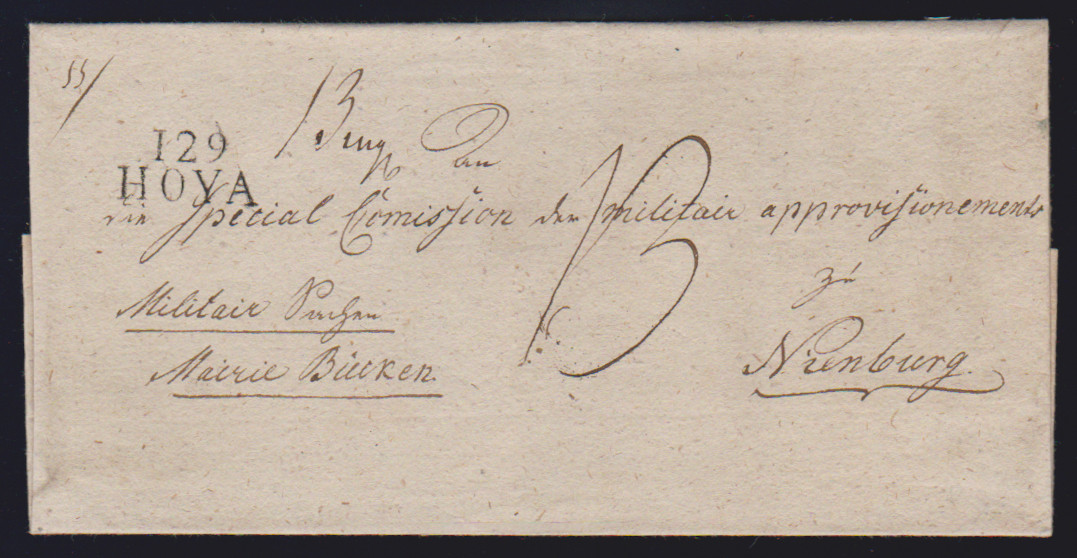 129
HOYA
An
die Special Comission der militair approvisionements
zu
Nienburg.
Militair Sachen
Mairie Bücken.